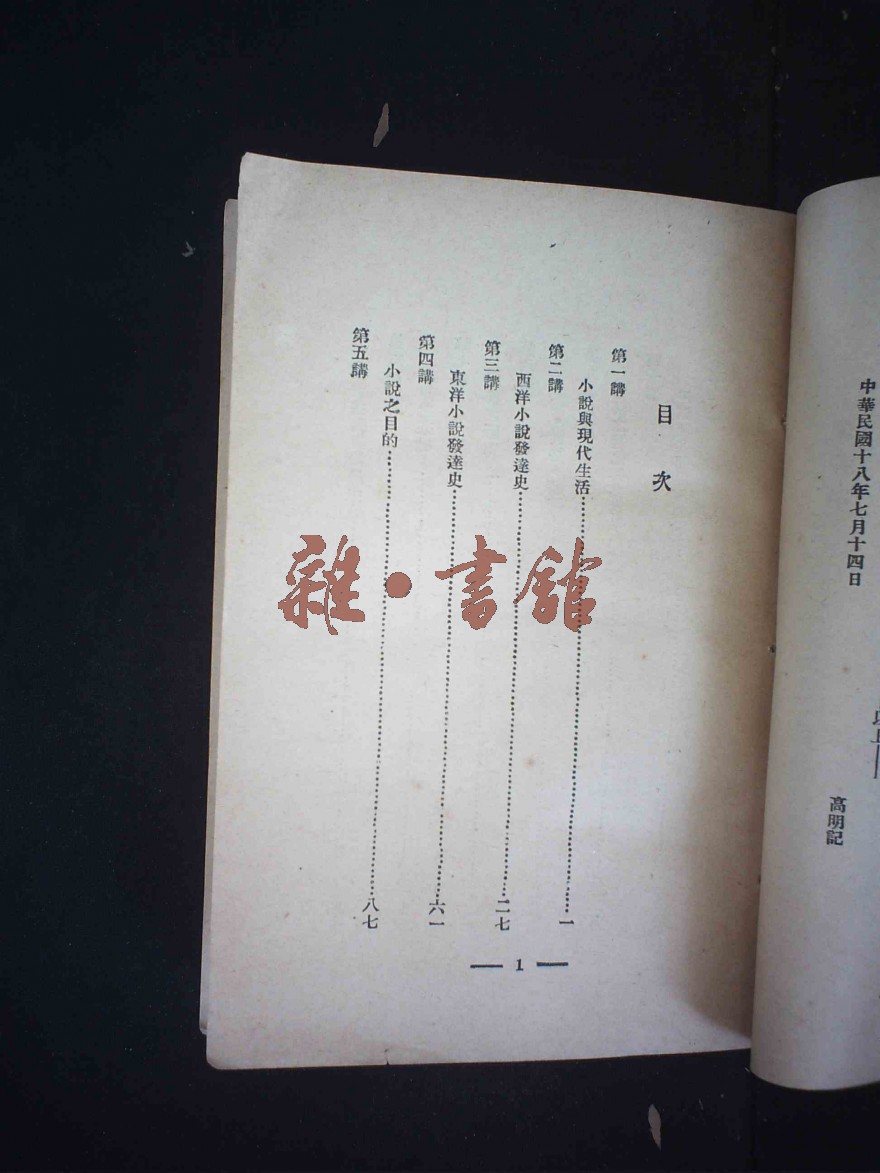 中華民國十八年七月十四日
高明記
目次
第一講
小說與現代生活……一
第二講
西洋小說發達史……二七
第三講
東洋小說發達史……六一
第四講
小說之目的……八七
第五講
— 1 —
雜·書館